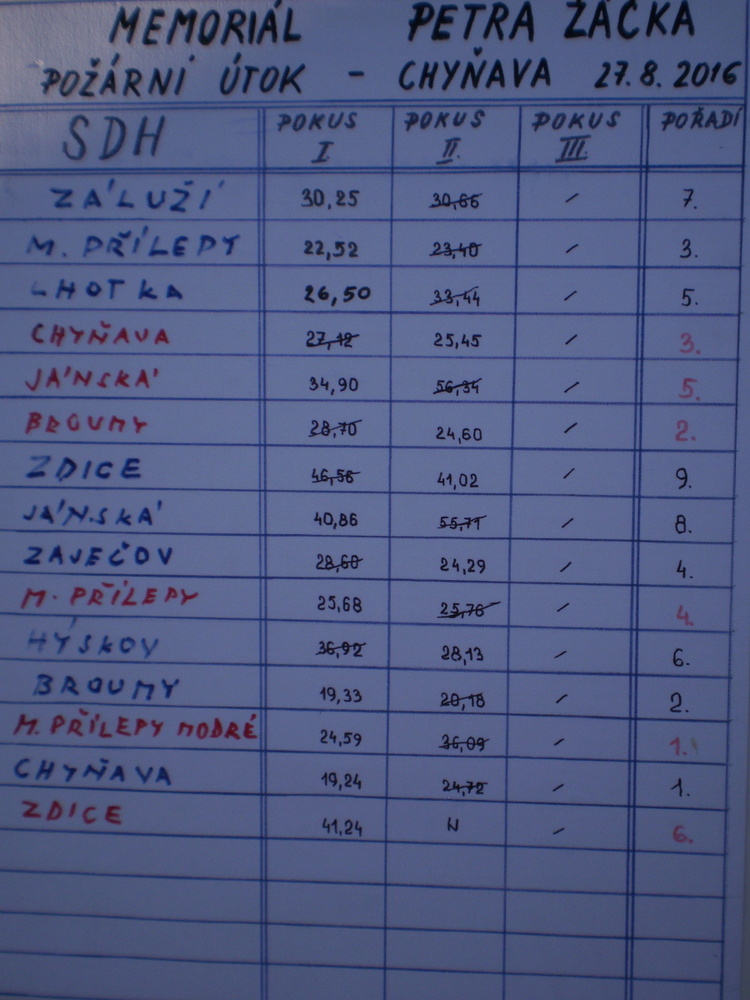 MEMORIÁL PETRA ŽÁČKA
POŽÁRNÍ ÚTOK - CHYŇAVA 27.8.2016
SDH POKUS I. POKUS II. POKUS III. POŘADÍ
ZÁLUŽÍ 30,25 30,66 / 7.
M. PŘÍLEPY 22,52 23,40 / 3.
LHOTKA 26,50 33,44 / 5.
CHYŇAVA 27,12 25,45 / 3.
JÁNSKÁ 34,90 56,34 / 5.
BROUMY 28,70 24,60 / 2.
ZDICE 46,56 41,02 / 9.
JÁNSKÁ 40,86 55,71 / 8.
ZAJEČOV 28,60 24,29 / 4.
M. PŘÍLEPY 25,68 25,76 / 4.
HÝSKOV 36,92 28,13 / 6.
BROUMY 19,33 20,18 / 2.
M. PŘÍLEPY MODRÉ 24,59 36,09 / 1.
CHYŇAVA 19,24 24,72 / 1.
ZDICE 41,24 N / 6.